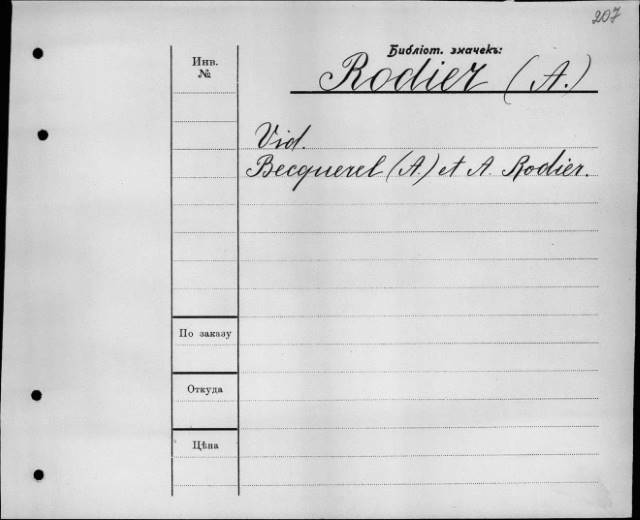 207
Библіот. значекъ:
Rodier (A.)
Инв.
№
Vid.
Becquerel (A.) et A. Rodier.
По заказу
Откуда
Цѣна